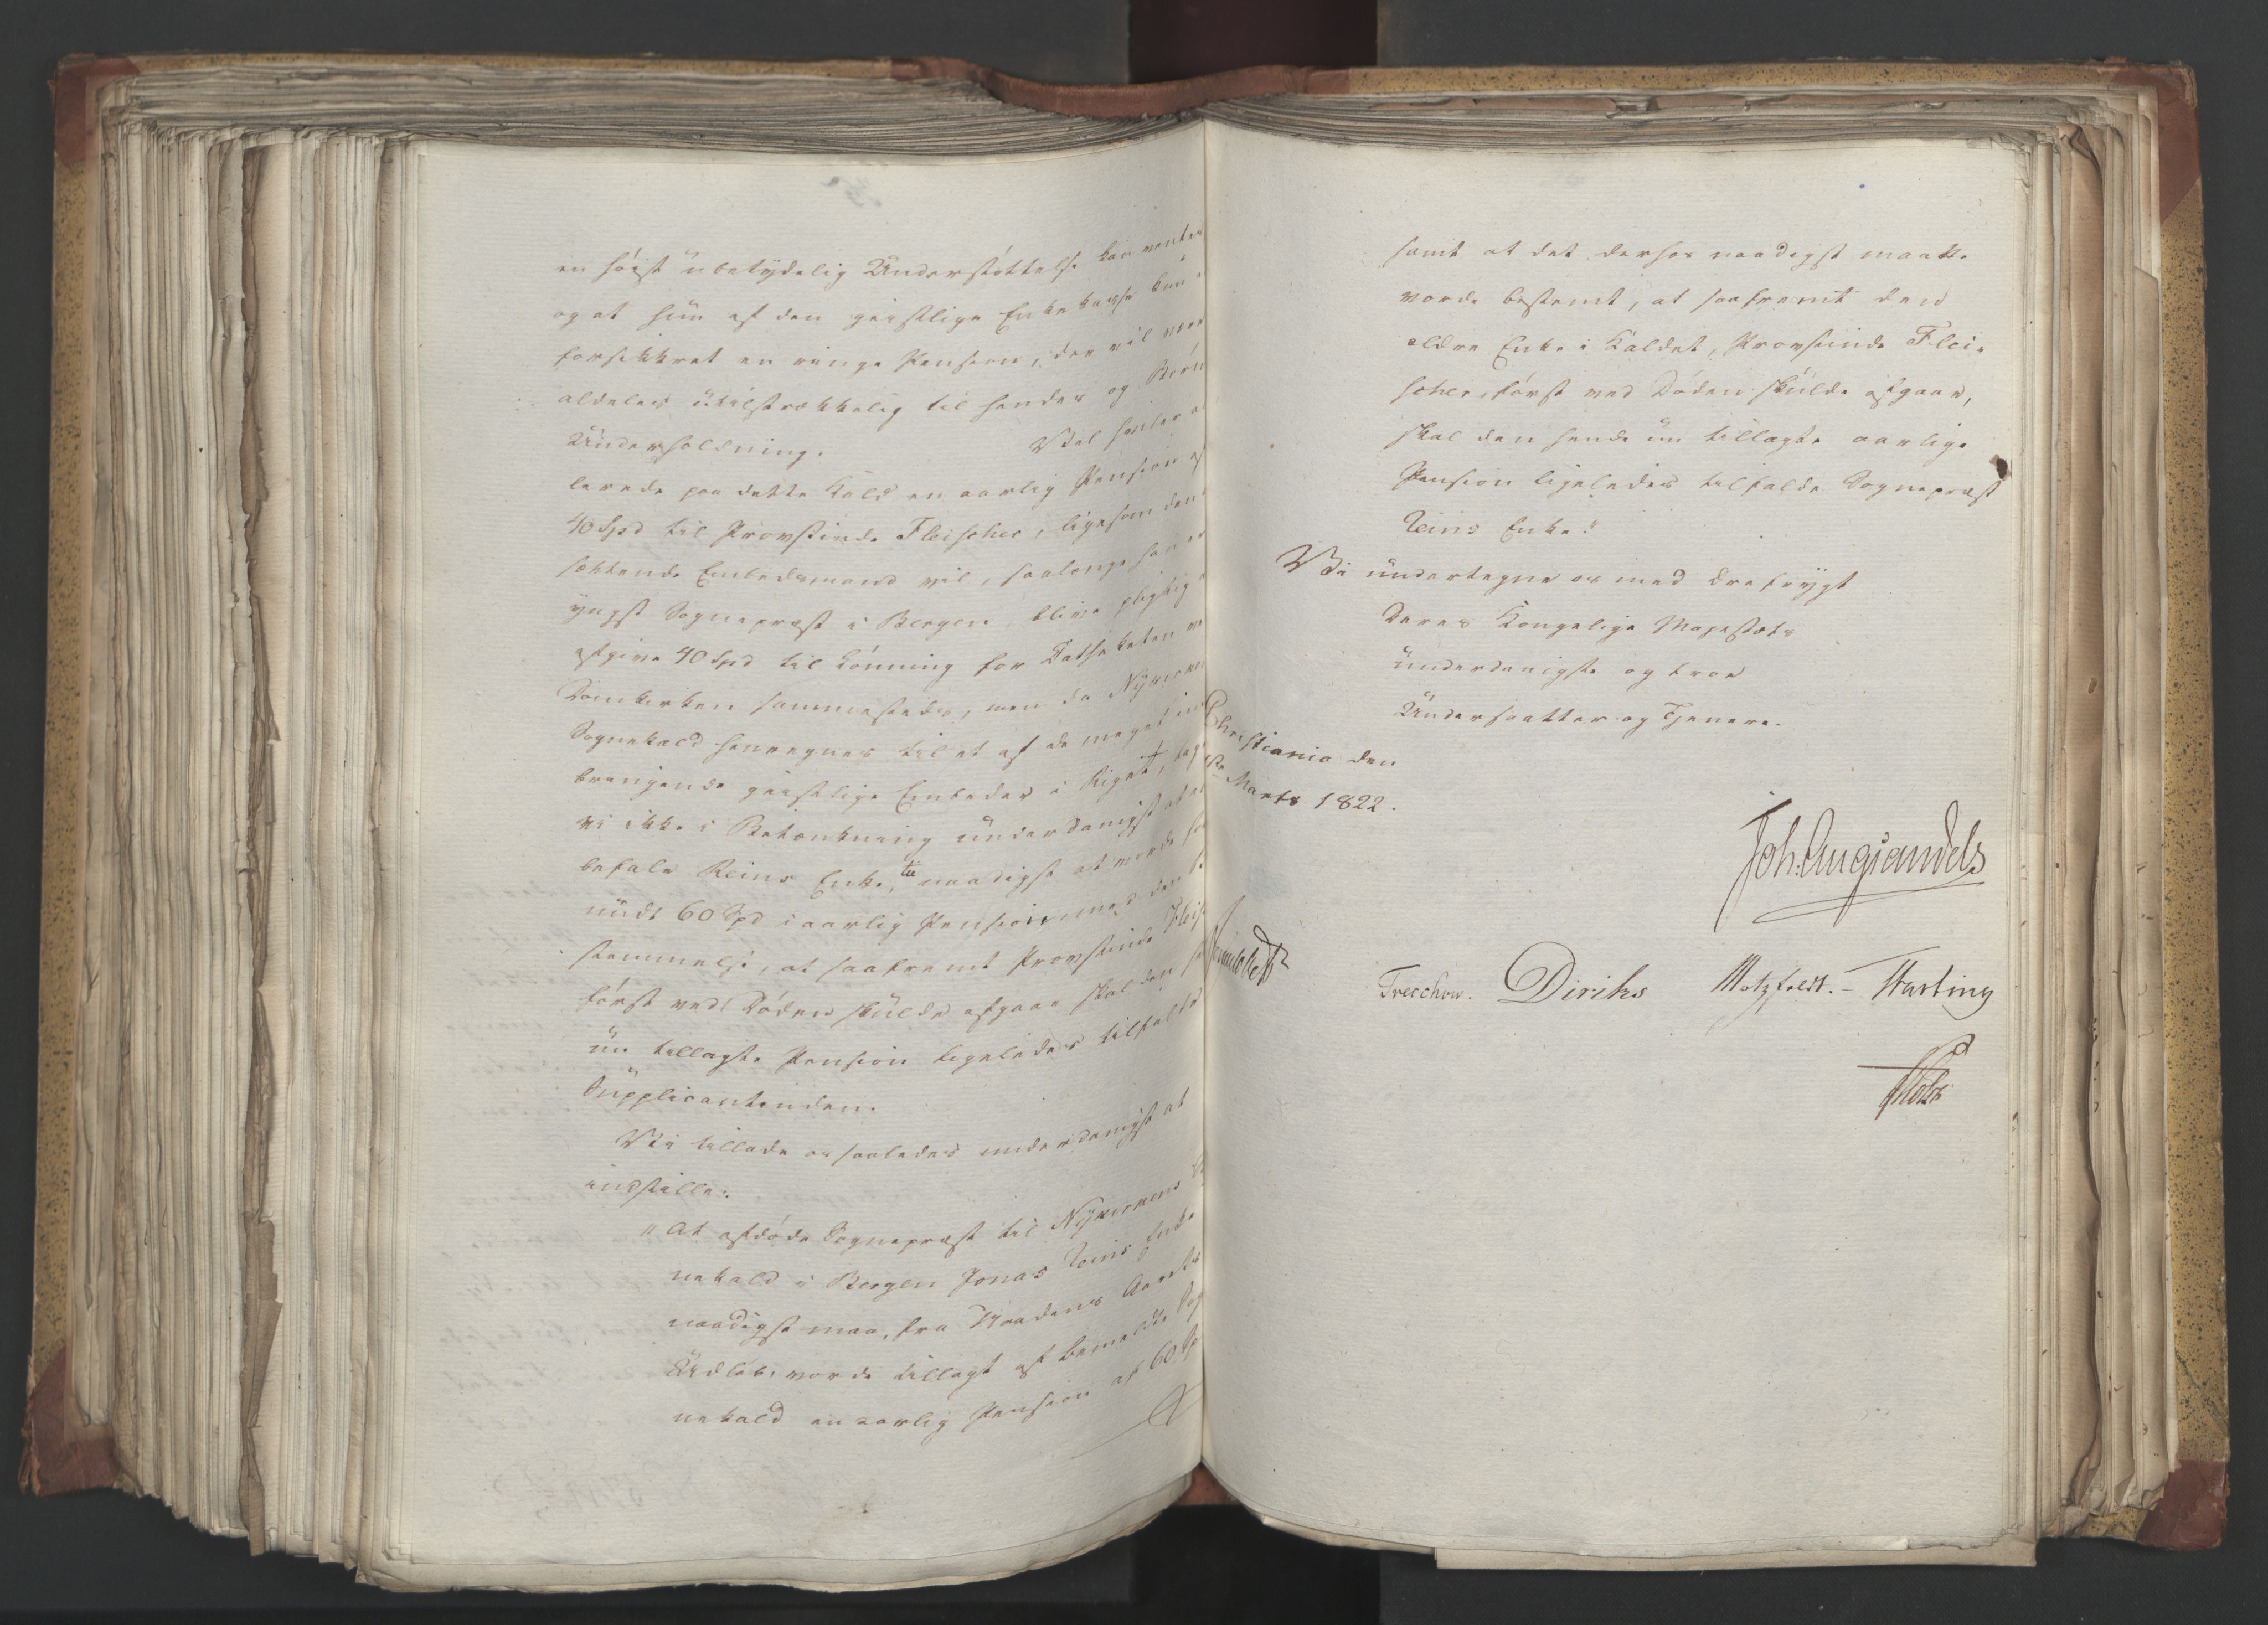 en høist ubetydelig Understøttelse kan ventes
og at hun af den geistlige Enkekasse kun
forsikkret en ringe Pension, der vil være
aldeles utilstrækkelig til hendes og Børns
Underholdning. Vel hviler al
lerede paa dette Kald en aarlig Pension af
40 Spd til Provstinde Fleischer, ligesom den
sættende Embedsmand vil, saalænge han er
yngst Sognepræst i Bergen blive pligtig
afgive 40 Spd til Lønning for Catheketen ve
Domkirken sammesteds, men da Nykirkens
Sognekald henregnes til et af de meget ind
bringende geistlige Embeder i Riget, tage
vi ikke i Betænkning underdanigst at an
befale Reins Enke, til naadigst at vorde for
undt 60 Spd i aarlig Pension, med den Be
stemmelse, at saafremt Provstinde Fleis
først ved Døden skulde afgaae skal den he
nu tillagte Pension ligeledes tilfalde
Supplicantinden.
Vi tillade os saaledes underdanigst at
indstille:
"At afdøde Sognepræst til Nykirkens Sog
nekald i Bergen Jonas Reins Enke
naadigst maa, fra Naadens Aarets
Udløb, vorde tillagt af bemeldte Sog
nekald en aarlig Pension af 60 Sp
samt at det derhos naadigst maatte
vorde bestemt, at saafremt den
ældre Enke i Kaldet, Provstinde Flei-
scher, først ved Døden skulde afgaae,
skal den hende nu tillagte aarlige
Pension ligeledes tilfalde Sognepræst
Reins Enke."
Vi undertegne os med Ærefrygt
Deres Kongelige Majestæts
underdanigste og troe
Undersaatter og Tjenere.
Christiania den
Marts 1822.
Joh. Aug Sandels
Sommerhielm
Treschow. Diriks Motzfeldt. Hasting
Holst